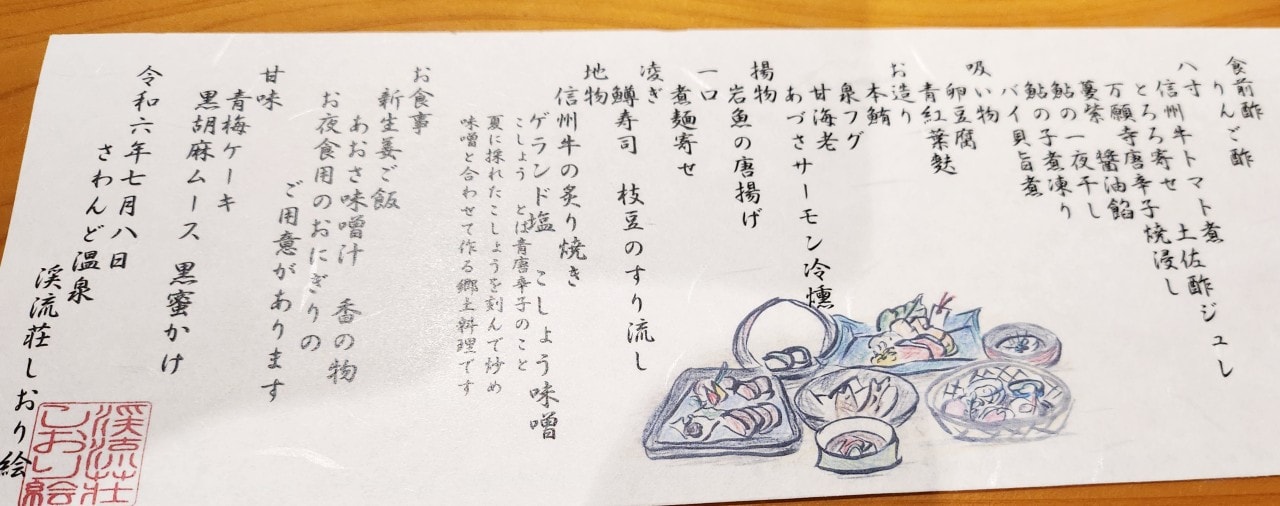 食前酢
りんご酢
八寸
信州牛トマト煮
とろろ寄せ 土佐酢ジュレ
万願寺唐辛子焼浸し
醤油餡
蔓紫一夜干し
鮎の子煮凍り
バイ貝旨煮
吸い物
卵豆腐
青紅葉麩
お造り
本鮪
泉フグ
甘海老
あづさサーモン冷燻
揚物
岩魚の唐揚げ
一口
煮麺寄せ
凌ぎ
鱒寿司 枝豆のすり流し
地物
信州牛の炙り焼き
ゲランド塩 こしょう味噌
こしょう とは青唐辛子のこと
夏に採れたこしょうを刻んで炒め
味噌と合わせて作る郷土料理です
お食事
新生姜ご飯
あおさ味噌汁 香の物
お夜食用のおにぎりの
ご用意があります
甘味
青梅ケーキ
黒胡麻ムース 黒蜜かけ
令和六年七月八日
さわんど温泉
渓流荘しおり絵
渓流荘
しおり絵